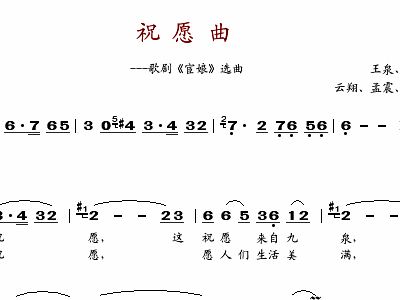 祝 愿 曲
---歌剧《宦娘》选曲
王泉、
云翔、孟震、
6·7 65 | 3 0 5#4 3·4 32 | 2 7· 2 76 56 | 6 - -
3·4 32 | #1 2 - - 23 | 6 65 36 12 | #1 2 - -
愿， 这 祝 愿 来自 九 泉，
愿， 愿 人 们 生活 美 满，